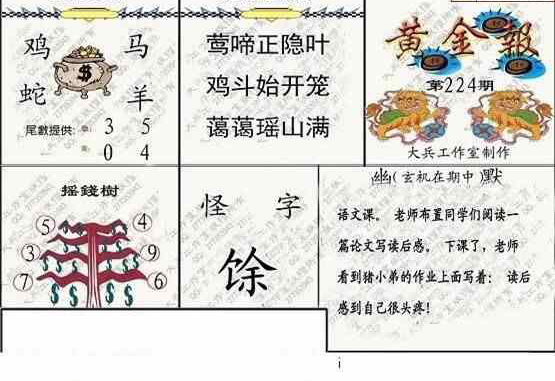 鸡 马
蛇 羊
尾數提供: 單: 3 5
0 4
莺啼正隐叶
鸡斗始开笼
蔼蔼瑶山满
黄金報
第224期
大兵工作室制作
摇錢樹
5 4
3 9
7 6
怪字
馀
幽(玄机在期中 默
语文课。 老师布置同学们阅读一
篇论文写读后感。 下课了，老师
看到猪小弟的作业上面写着： 读后
感到自己很头疼!
i